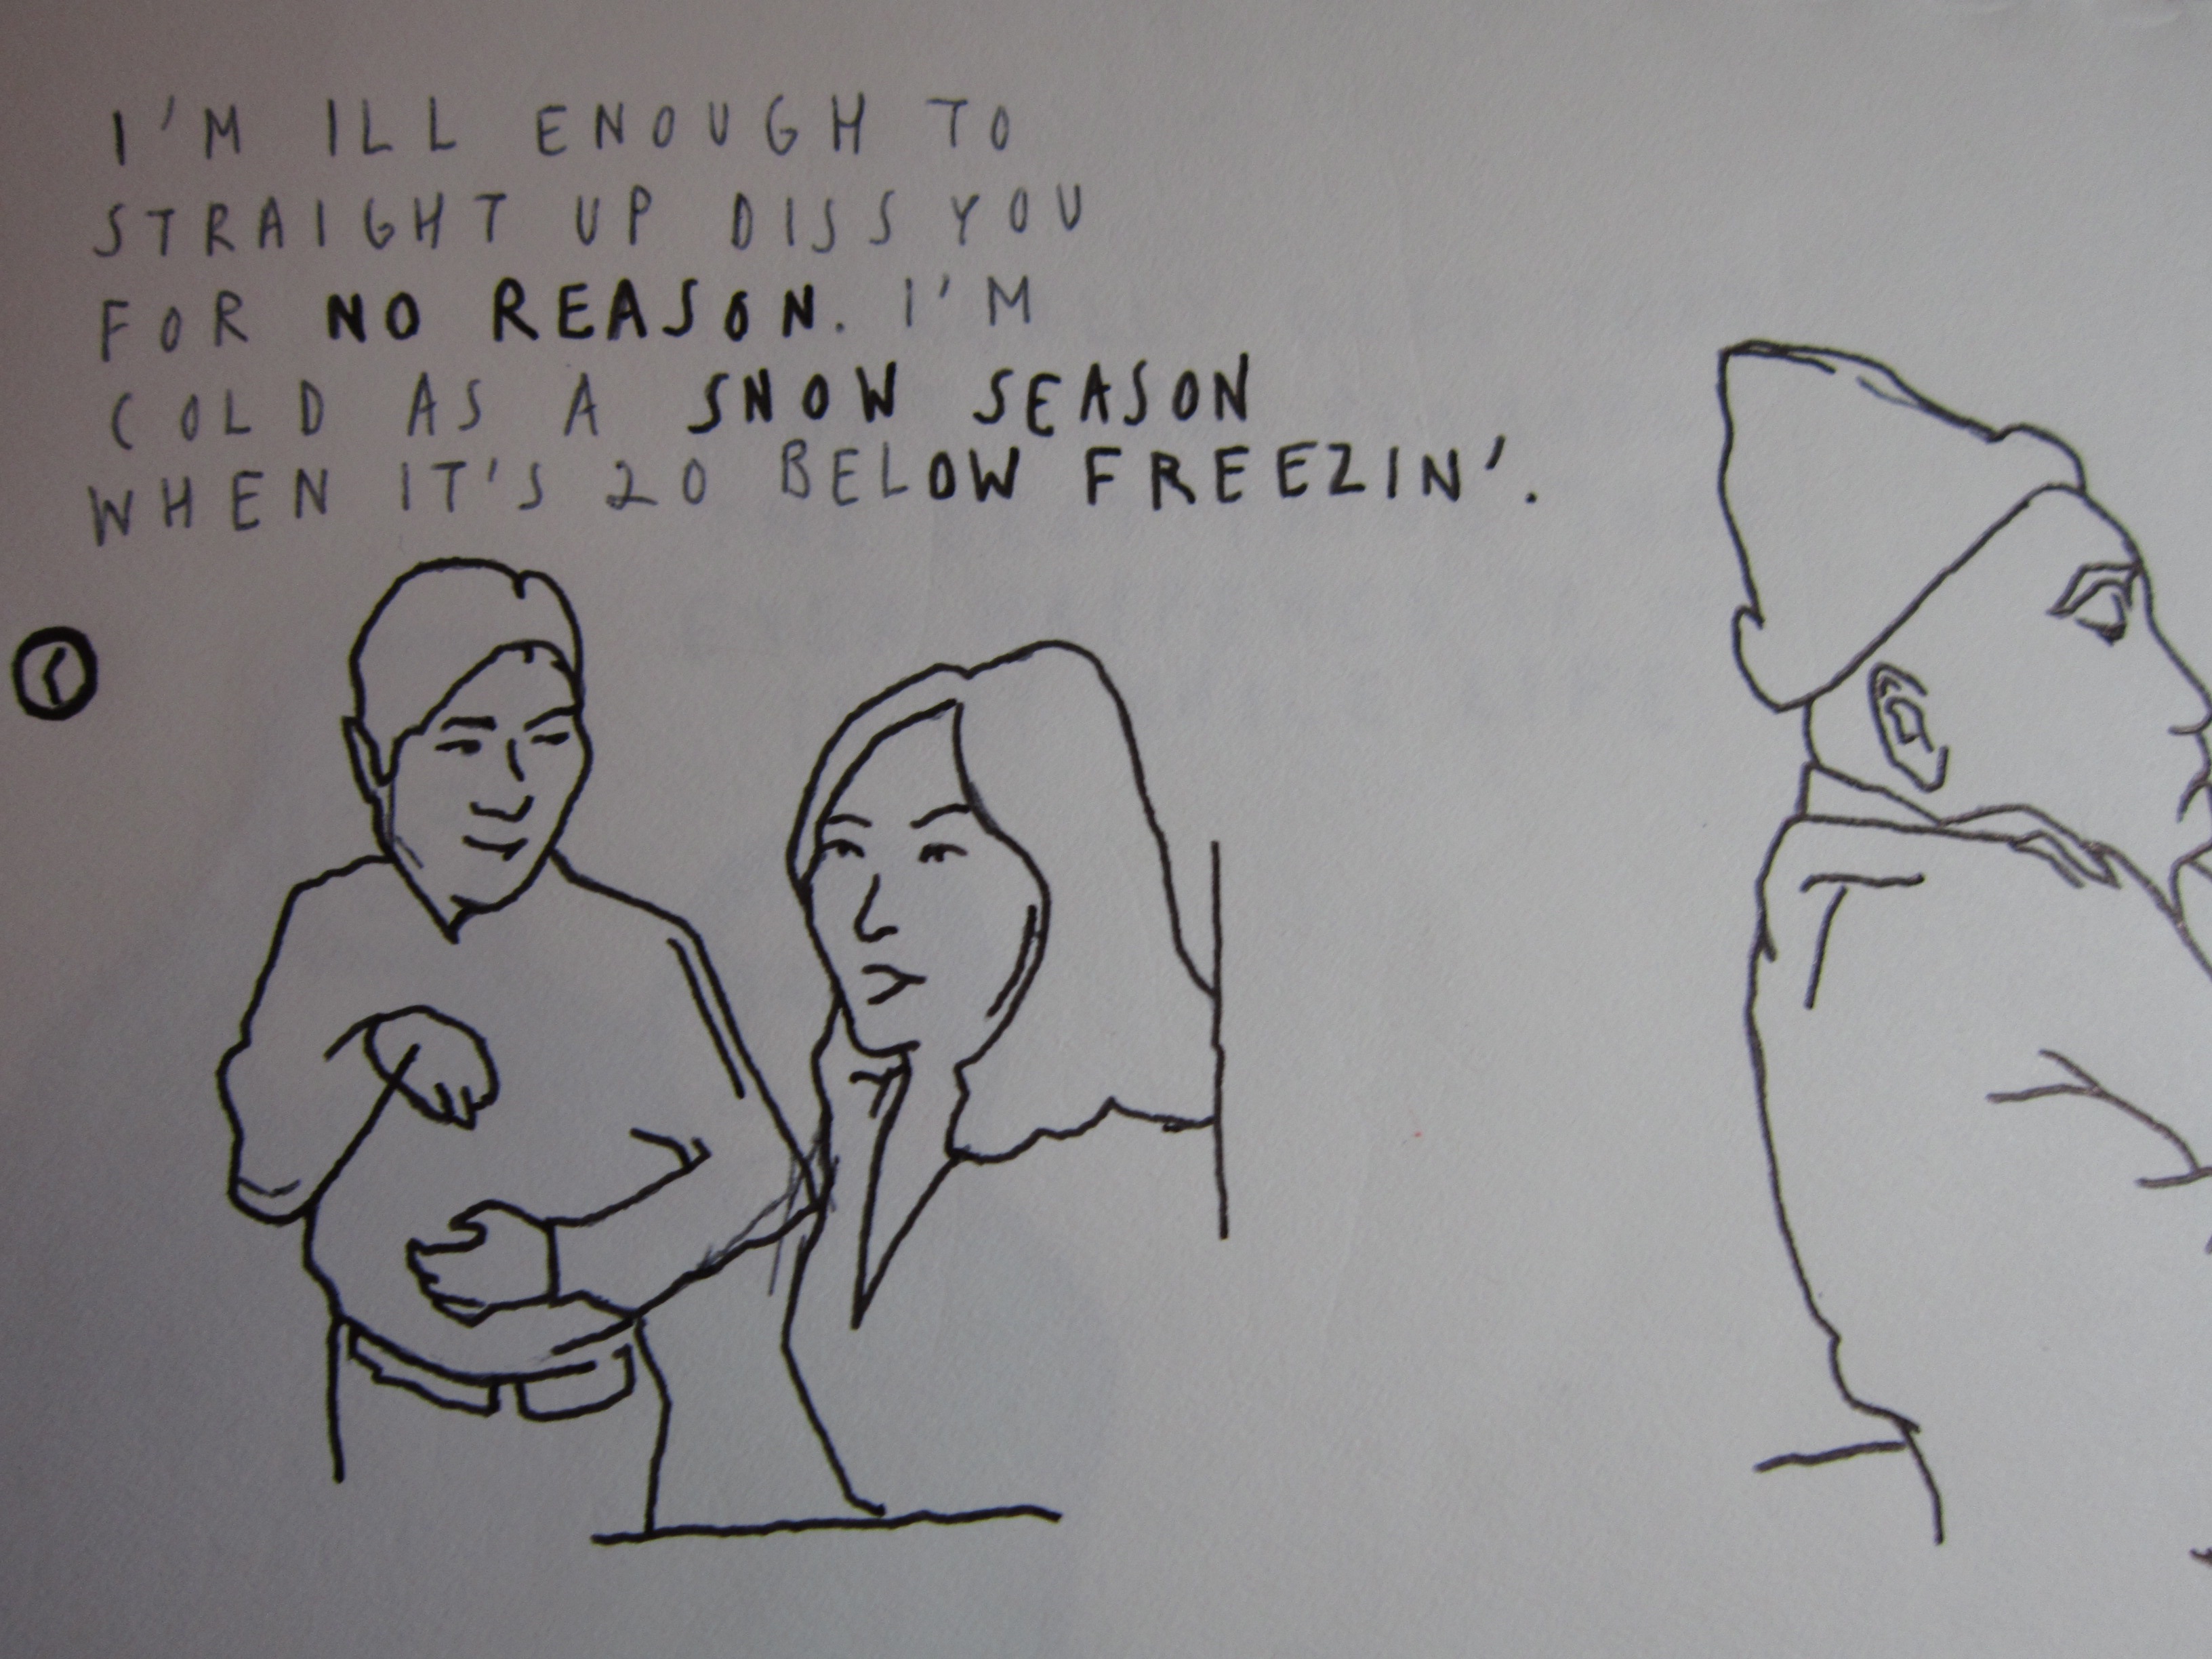 I'M ILL ENOUGH TO
STRAIGHT UP DISS YOU
FOR NO REASON. I'M
COLD AS A SNOW SEASON
WHEN IT'S 20 BELOW FREEZIN'.